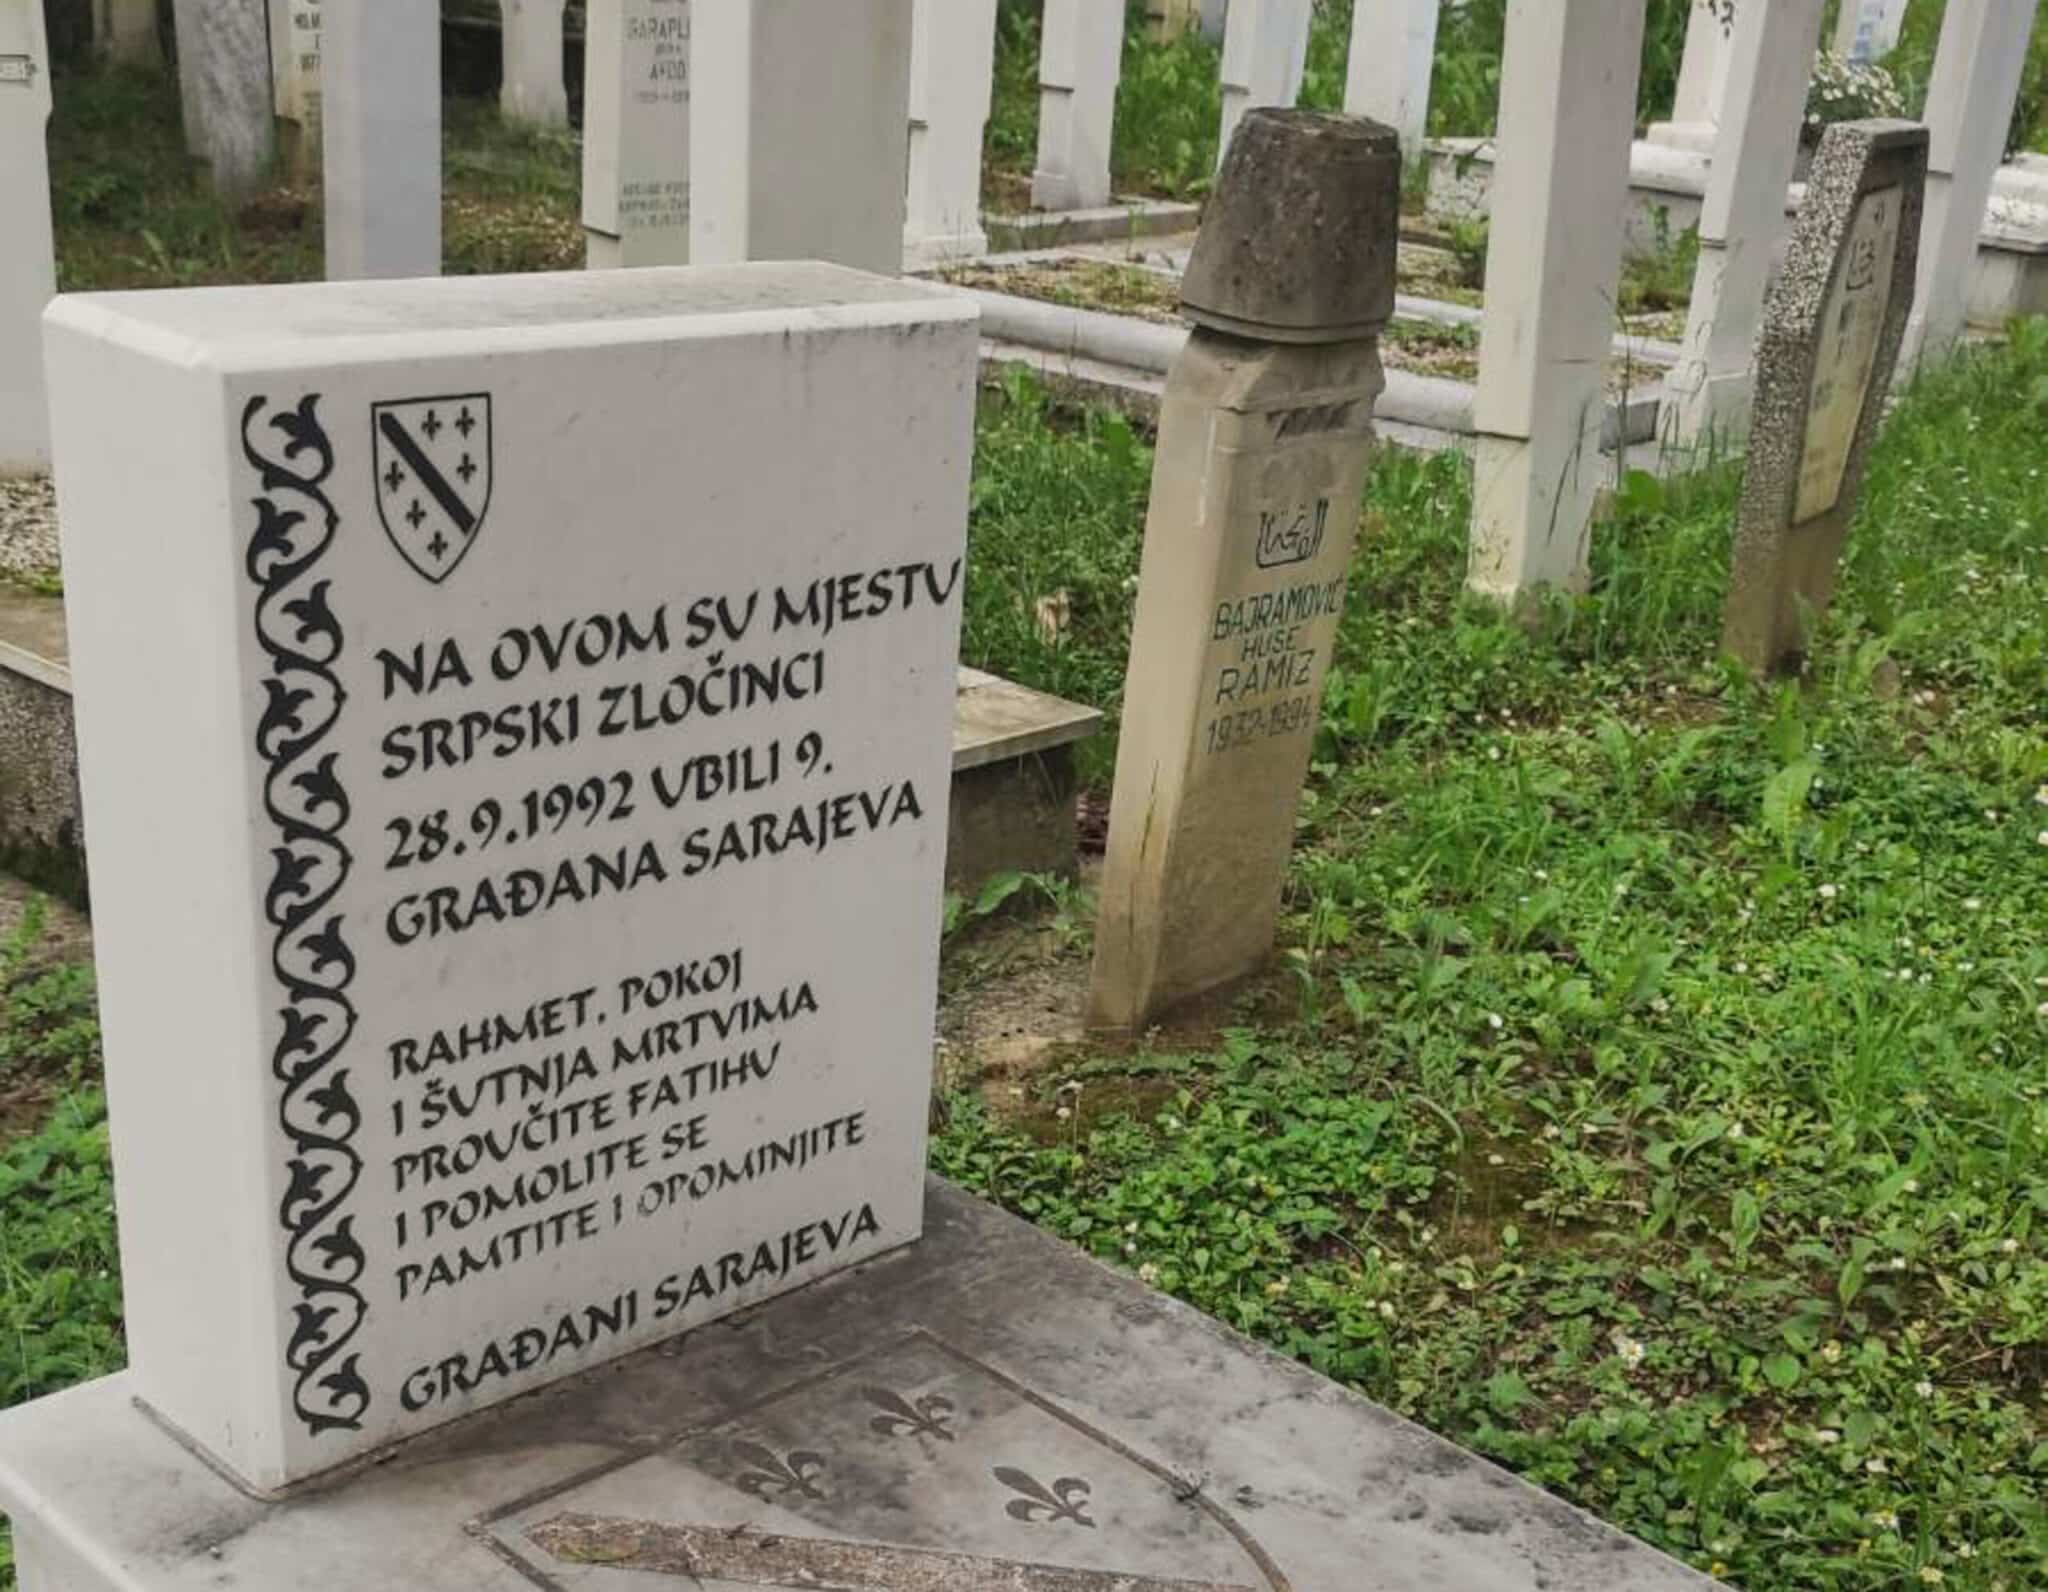 NA OVOM SU MJESTU
SRPSKI ZLOČINCI
28.9.1992 UBILI 9.
GRAĐANA SARAJEVA
RAHMET, POKOJ
I ŠUTNJA MRTVIMA
PROUČITE FATIHU
I POMOLITE SE
PAMTITE I OPOMINJITE
GRAĐANI SARAJEVA
BAJRAMOVIĆ
HUSE
RAMIZ
1932-1994